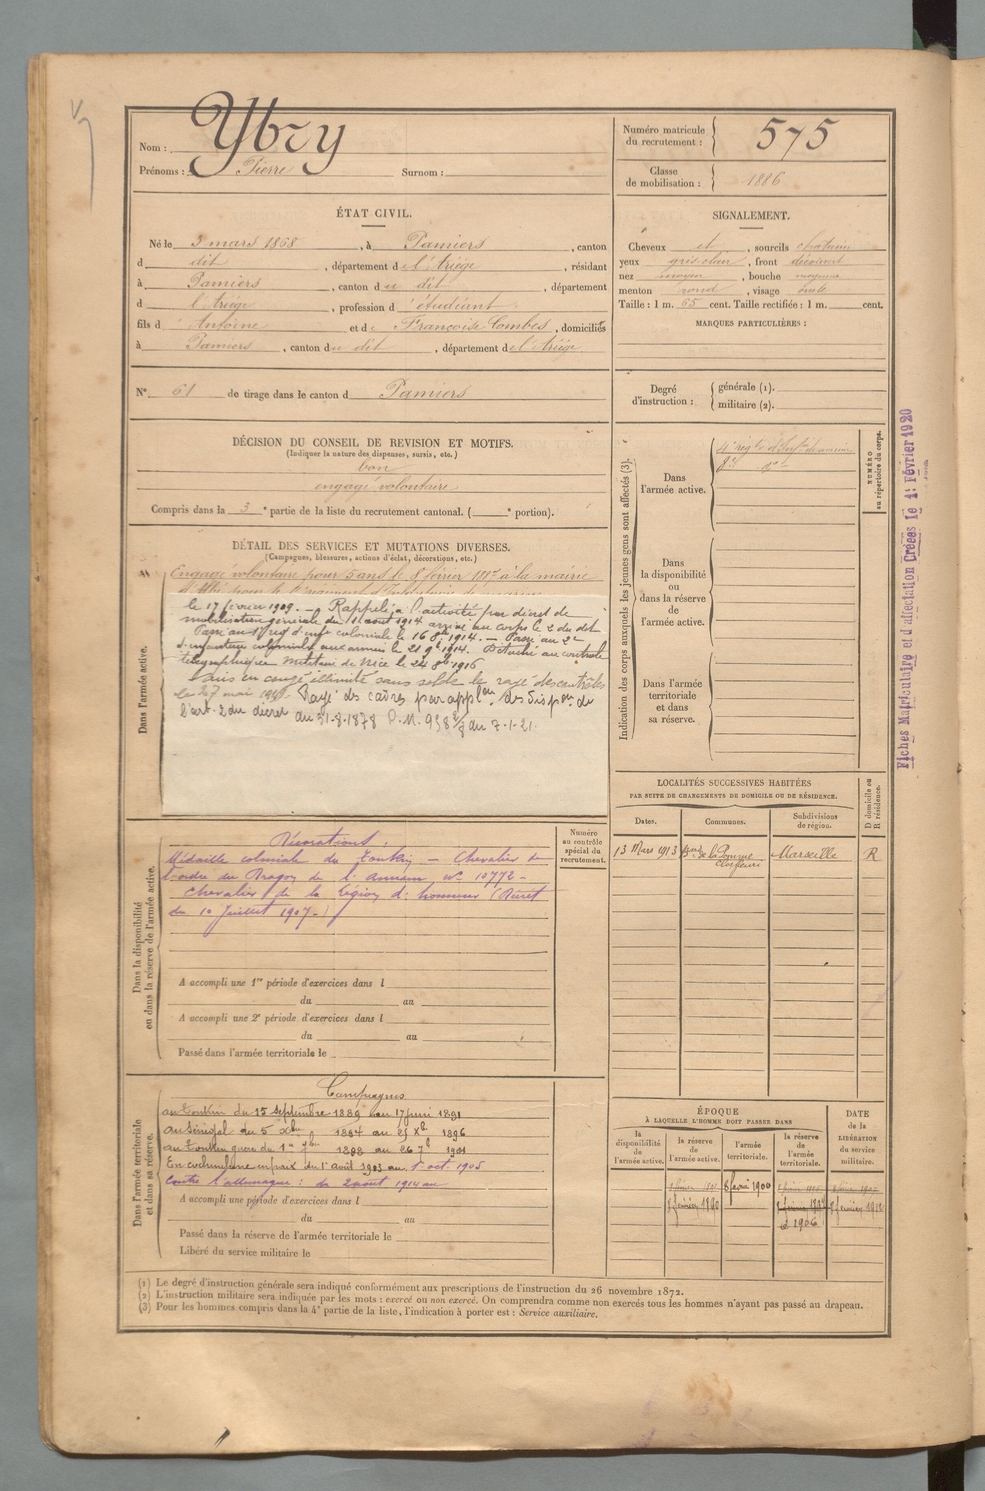 Nom : Ybry
Prénoms : Pierre Surnom :
Numéro matricule du recrutement : 575
Classe de mobilisation : 1886
ÉTAT CIVIL.
Né le 3 mars 1868, à Pamiers, canton
d dit, département de l'Ariège, résidant
à Pamiers, canton du dit, département
d l'Ariège, profession d'étudiant
fils d'Antoine et de Françoise Combes, domiciliés
à Pamiers, canton du dit, département de l'Ariège
N° 61 de tirage dans le canton d Pamiers
SIGNALEMENT.
Cheveux et, sourcils chatain
yeux gris clair, front découvert
nez moyen, bouche moyenne
menton rond, visage ovale
Taille : 1 m. 65 cent. Taille rectifiée : 1 m. cent.
MARQUES PARTICULIÈRES :
Degré d'instruction : générale (1).
militaire (2).
DÉCISION DU CONSEIL DE REVISION ET MOTIFS.
(Indiquer la nature des dispenses, sursis, etc.)
bon
engagé volontaire
Compris dans la 3e partie de la liste du recrutement cantonal. ( e portion).
DÉTAIL DES SERVICES ET MUTATIONS DIVERSES.
(Campagnes, blessures, actions d'éclat, décorations, etc.)
Dans l'armée active.
Engagé volontaire pour 5 ans le 8 février à la mairie
le 17 février 1909. — Rappelé à l'activité par décret de
mobilisation générale du 1 août 1914 arrivé au corps le 2 du dit
Passé au coloniale le 16 8bre 1914. — Passé au 2e
d'infanterie coloniale aux armées le 21 9bre 1914. Détaché au controle
télégraphique militaire de Nice le 24 8bre 1916
Mis en congé illimité sans solde le rayé des controles
le 27 mai Rayé des cadres par appl on des Dispon de
l'art. 2 du décret du 31-8-1878 D.M. 938 du 7-1-21.
Indication des corps auxquels les jeunes gens sont affectés (3).
Dans l'armée active.
4e régt d'Infie de marine
8e do
Dans la disponibilité ou dans la réserve de l'armée active.
Dans l'armée territoriale et dans sa réserve.
NUMÉRO au répertoire du corps.
Fiches Matriculaire et d'affectation Créées le 1er Février 1920
LOCALITÉS SUCCESSIVES HABITÉES
PAR SUITE DE CHANGEMENTS DE DOMICILE OU DE RÉSIDENCE.
Dates. Communes. Subdivisions de région. D domicile ou R résidence.
13 Mars 1913 de la Pomme Marseille R
Dans la disponibilité ou dans la réserve de l'armée active.
Numéro au contrôle spécial du recrutement.
Décorations :
Médaille coloniale du Tonkin — Chevalier de
l'ordre du Dragon de l'Annam N° 10772 —
Chevalier de la légion d'honneur (Décret
du 10 Juillet 1907 —)
A accompli une 1re période d'exercices dans l
du au
A accompli une 2e période d'exercices dans l
du au
Passé dans l'armée territoriale le
Dans l'armée territoriale et dans sa réserve.
Campagnes
au Tonkin du 15 Septembre 1889 au 17 Juin 1891
au Sénégal du 5 Xbre 1894 au 25 Xbre 1896
au Tonkin guerre du 1er 7bre 1898 au 26 7bre 1901
En cochinchine en paix du 1er août 1903 au 1er oct. 1905
Contre l'allemagne : du 2 août 1914 au
A accompli une période d'exercices dans l
du au
Passé dans la réserve de l'armée territoriale le
Libéré du service militaire le
ÉPOQUE
À LAQUELLE L'HOMME DOIT PASSER DANS
la disponibilité de l'armée active.
la réserve de l'armée active.
l'armée territoriale.
la réserve de l'armée territoriale.
DATE de la LIBÉRATION du service militaire.
8 février 1900
d° 1906
(1) Le degré d'instruction générale sera indiqué conformément aux prescriptions de l'instruction du 26 novembre 1872.
(2) L'instruction militaire sera indiquée par les mots : exercé ou non exercé. On comprendra comme non exercés tous les hommes n'ayant pas passé au drapeau.
(3) Pour les hommes compris dans la 4e partie de la liste, l'indication à porter est : Service auxiliaire.